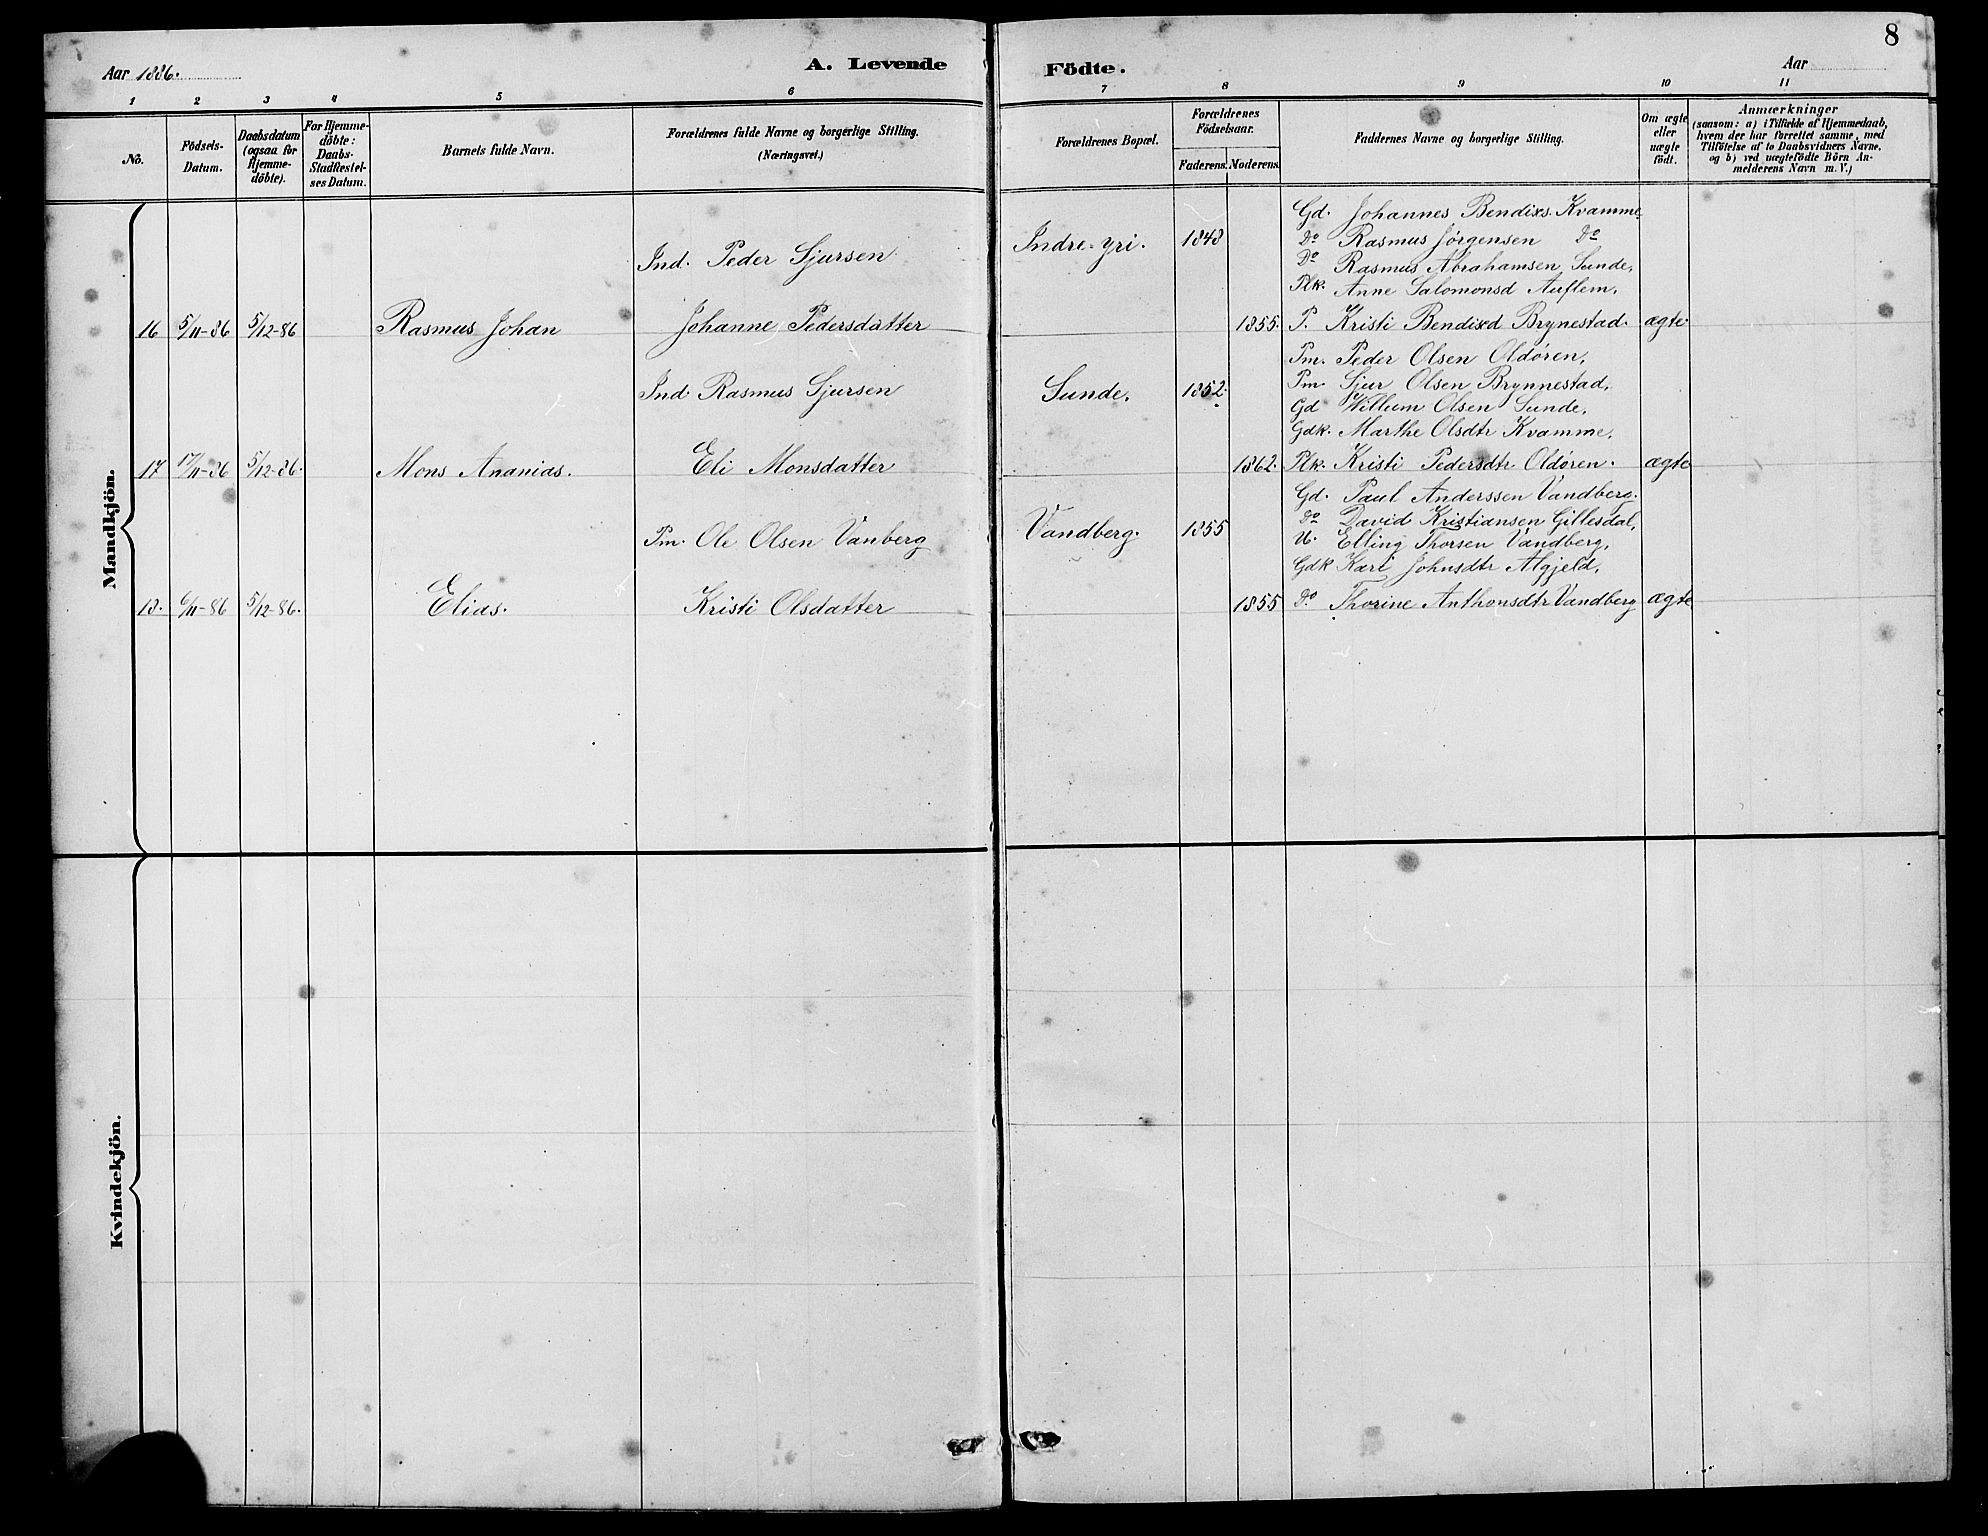 8
Aar 1886.
A. Levende
Födte.
Aar
1 2 3 4 5 6 7 8 9 10 11
No.
Födsels-
Datum.
Daabsdatum
(ogsaa for
Hjemme-
döbte).
For Hjemme-
döbte:
Daabs-
Stadfæstel-
ses Datum.
Barnets fulde Navn.
Forældrenes fulde Navne og borgerlige Stilling.
(Næringsvei.)
Forældrenes Bopæl.
Forældrenes
Födselsaar.
Faderens.
Moderens.
Faddernes Navne og borgerlige Stilling.
Om ægte
eller
uægte
födt.
Anmærkninger
(saasom: a) i Tilfælde af Hjemmedaab,
hvem der har forrettet samme, med
Tilföielse af to Daabsvidners Navne,
og b) ved uægtefödte Börn An-
melderens Navn m. V.)
Mandkjön.
Ind. Peder Sjursen
Indre-yri. 1848
Gd. Johannes Bendixs. Kvamme
Do Rasmus Jørgensen Do
Do Rasmus Abrahamsen Sunde,
Plk. Anne Salomonsd Auflem,
16 5/11-86 5/12-86 Rasmus Johan Johanne Pedersdatter 1855. P. Kristi Bendixd Brynestad. ægte.
Ind. Rasmus Sjursen
Sunde. 1852.
Pm. Peder Olsen Oldøren,
Pm. Sjur Olsen Brynnestad,
Gd Willum Olsen Sunde,
Gdk. Marthe Olsdtr Kvamme,
17 17/11-86 5/12-86. Mons Ananias. Eli Monsdatter 1862. Plk. Kristi Pedersdtr Oldøren. ægte
Pm. Ole Olsen Vanberg
Vandberg. 1855
Gd. Paul Anderssen Vandberg.
Do David Kristiansen Gillesdal,
U. Elling Thorsen Vandberg,
Gdk Kari Johnsdtr Algjeld,
18. 6/11-86 5/12-86. Elias. Kristi Olsdatter 1855 Do Thorine Anthonsdtr Vandberg ægte
Kvindekjön.